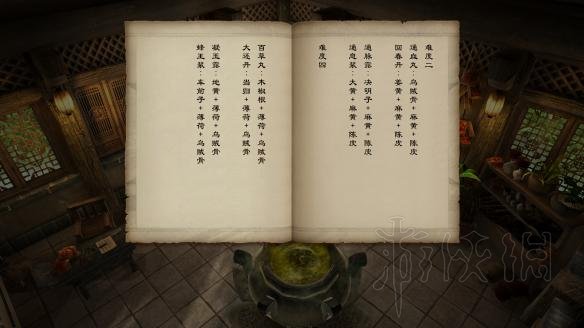 难度二
通血丸：乌贼骨+麻黄+陈皮
回春丹：苓黄+麻黄+陈皮
通脉露：决明子+麻黄+陈皮
通息浆：大黄+麻黄+陈皮
难度四
百草丸：木椒根+薄荷+乌贼骨
大还丹：当归+薄荷+乌贼骨
凝玉露：地黄+薄荷+乌贼骨
蜂王浆：车前子+薄荷+乌贼骨
游侠网